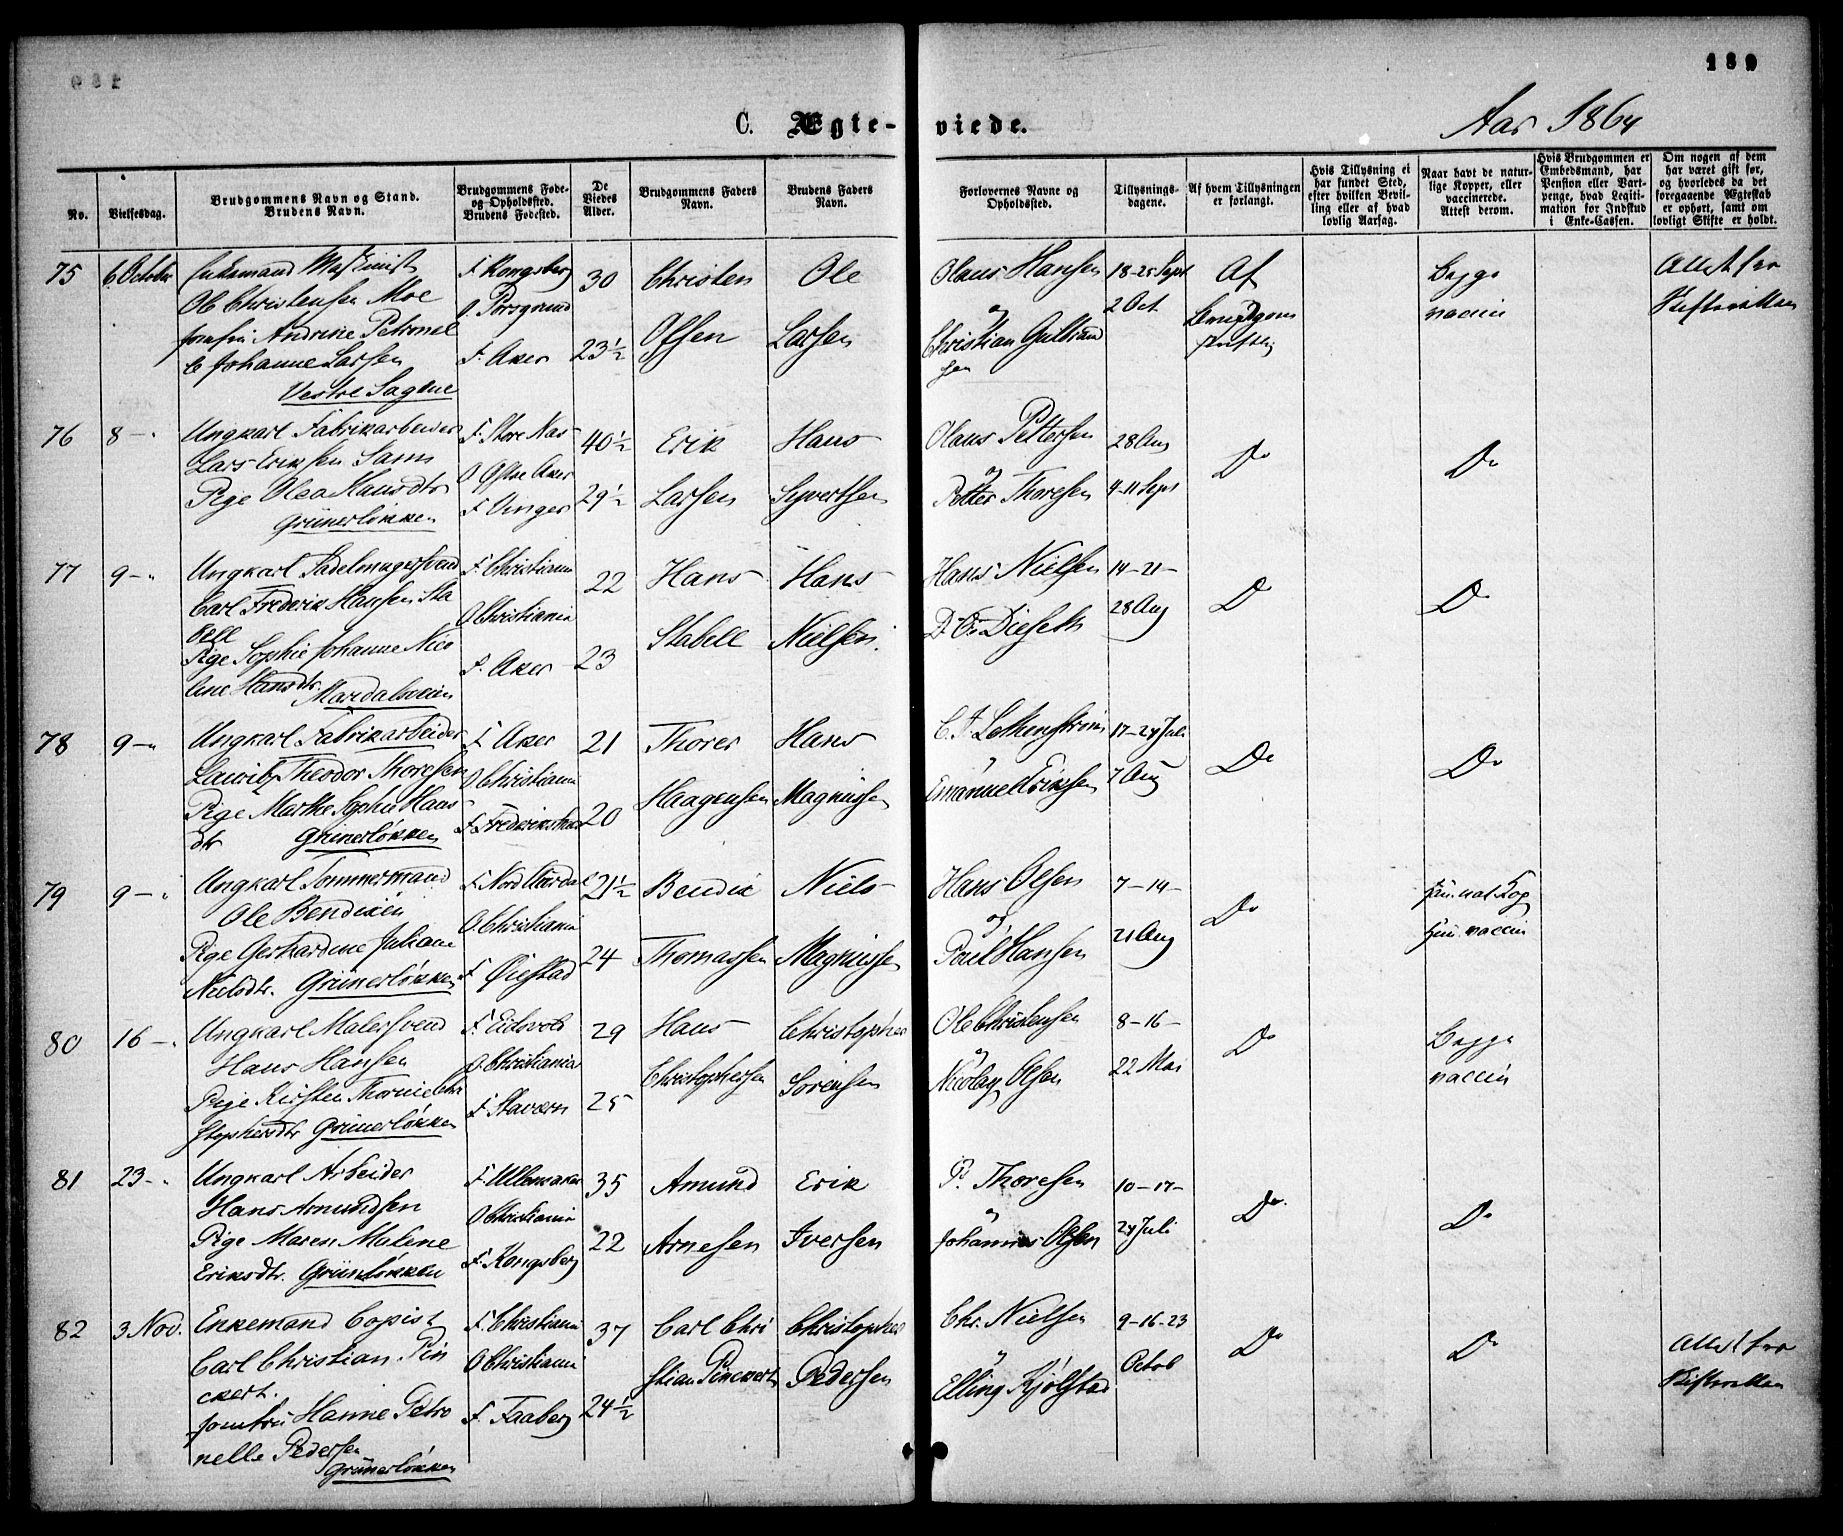 139
C. Ægte-viede.
Aar 1864
No.
Vielsesdag.
Brudgommens Navn og Stand.
Brudens Navn.
Brudgommens Føde-
og Opholdssted.
Brudens Fødested.
De
Viedes
Alder.
Brudgommens Faders
Navn.
Brudens Faders
Navn.
Forlovernes Navne og
Opholdssted.
Tillysnings-
dagene.
Af hvem Tillysningen
er forlangt.
Hvis Tillysning ei
har fundet Sted,
efter hvilken Bevil-
ling eller af hvad
lovlig Aarsag.
Naar havt de natur-
lige Kopper, eller
vaccinerede.
Attest derom.
Hvis Brudgommen er
Embedsmand, har
Pension eller Vart-
penge, hvad Legiti-
mation for Indskud
i Enke-Cassen.
Om nogen af dem
har været gift før,
og hvorledes da det
foregaaende Ægteskab
er ophørt, samt om
lovligt Skifte er holdt.
75
6 October
Enkemand Maskinist
Ole Christensen Moe
Jomfru Andrine Petronel
le Johanne Larsen
Vestre Sagene
F. Kongsberg
O. Porsgrund
F. Aker
30
23½
Christen
Olssen
Ole
Larsen
Olaus Hansen
og
Christian Gulbrand
sen
18-25 Sept
2 Oct
Af
Brudgom
Begge
vaccin
Attest fra
Skifteretten
76
8 -
Ungkarl Fabrikarbeider
Lars Eriksen Sann
Pige Olea Hansdtr
Grünerløkken
F. Store Næs
O. Østre Aker
F. Vinger
40½
29½
Erik
Larsen
Hans
Syvertsen
Olaus Pettersen
og
Petter Thoresen
28 Aug
4-11 Sept
Do
Do
77
9 -
Ungkarl Sadelmagersvend
Carl Frederik Hansen Sta
bell
Pige Sophie Johanne Nico
line Hansdtr.
Maridalsveien
F. Christiania
O Christiania
F. Aker
22
23
Hans
Stabell
Hans
Nielsen
Hans Nielsen
D. O. Dieseth
14-21-
28 Aug
Do
Do
78
9 -
Ungkarl Fabrikarbeider
Lauritz Theodor Thoresen
Pige Marthe Sophie Hans
dtr
Grünerløkken
F. Aker
O Christiania
F. Frederikstad
21
20
Thorer
Haagensen
Hans
Magnussen
Emanuel Eriksen
17-24 Juli
7 Aug
Do
Do
79
9 -
Ungkarl Tømmermand
Ole Bendixen
Pige Gerhardine Juliane
Nielsdtr. Grünerløkken
F. Nord Aurdal
O. Christiania
F. Øiestad
21½
24
Bendix
Thomassen
Niels
Magnussen
Hans Olsen
og
Poul Hansen
7-14-
21 Aug
Do
Han nat Kop
Hun vaccin
80
16 -
Ungkarl Malersvend
Hans Hansen
Pige Kirsten Thorine Chri
stophersdtr Grünerløkken
F. Eidsvold
O. Christiania
F. Stavern
29
25
Hans
Christophersen
Christopher
Sørensen
Ole Christensen
og
Nicolay Olsen
8-16-
22 Mai
Do
Begge
vaccin
81
23 -
Ungkarl Arbeider
Hans Amundsen
Pige Maren Malene
Eriksdtr. Grünerløkken
F. Ullensaker
O Christiania
F. Kongsberg
35
22
Amund
Arnesen
Erik
Iversen
P. Thoresen
og
Johannes Olsen
10-17-
24 Juli
Do
Do
82
3 Nov.
Enkemand Copist
Carl Christian Pin
ckert.
Jomfru Hanne Petro
nelle Pedersen
Grünerløkken
F. Christiania
O Christiania
F. Faaberg
37
24½
Carl Chri
stian Pinckert
Christopher
Pedersen
Chr. Nielsen
Elling Kjølstad
9-16-23
Octob
Do
Do
Attest fra
Skifteretten